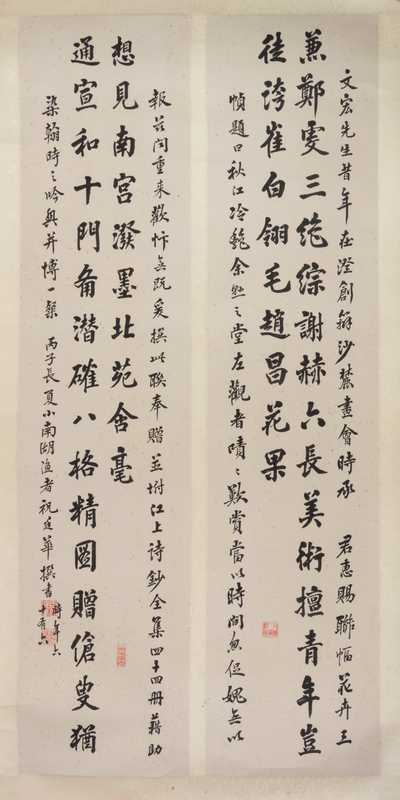 文宏先生昔年在澄創辦沙麓畫會時承 君惠賜聯幅花卉三
兼鄭虔三絕綜謝赫六長美術擅青年豈
徒誇崔白翎毛趙昌花果
幀題曰秋江冷艷余懸之堂左觀者嘖〻歎賞當以時間怱促媿無以
報茲間重來歡忭無既爰撰此聯奉贈並坿江上詩鈔全集四十四冊藉助
通宣和十門備潛確八格精圖贈傖叟猶
想見南宮潑墨北苑含毫
染翰時之吟興并博一粲 丙子長夏小南湖漁者祝廷華撰書 時年六
十有六